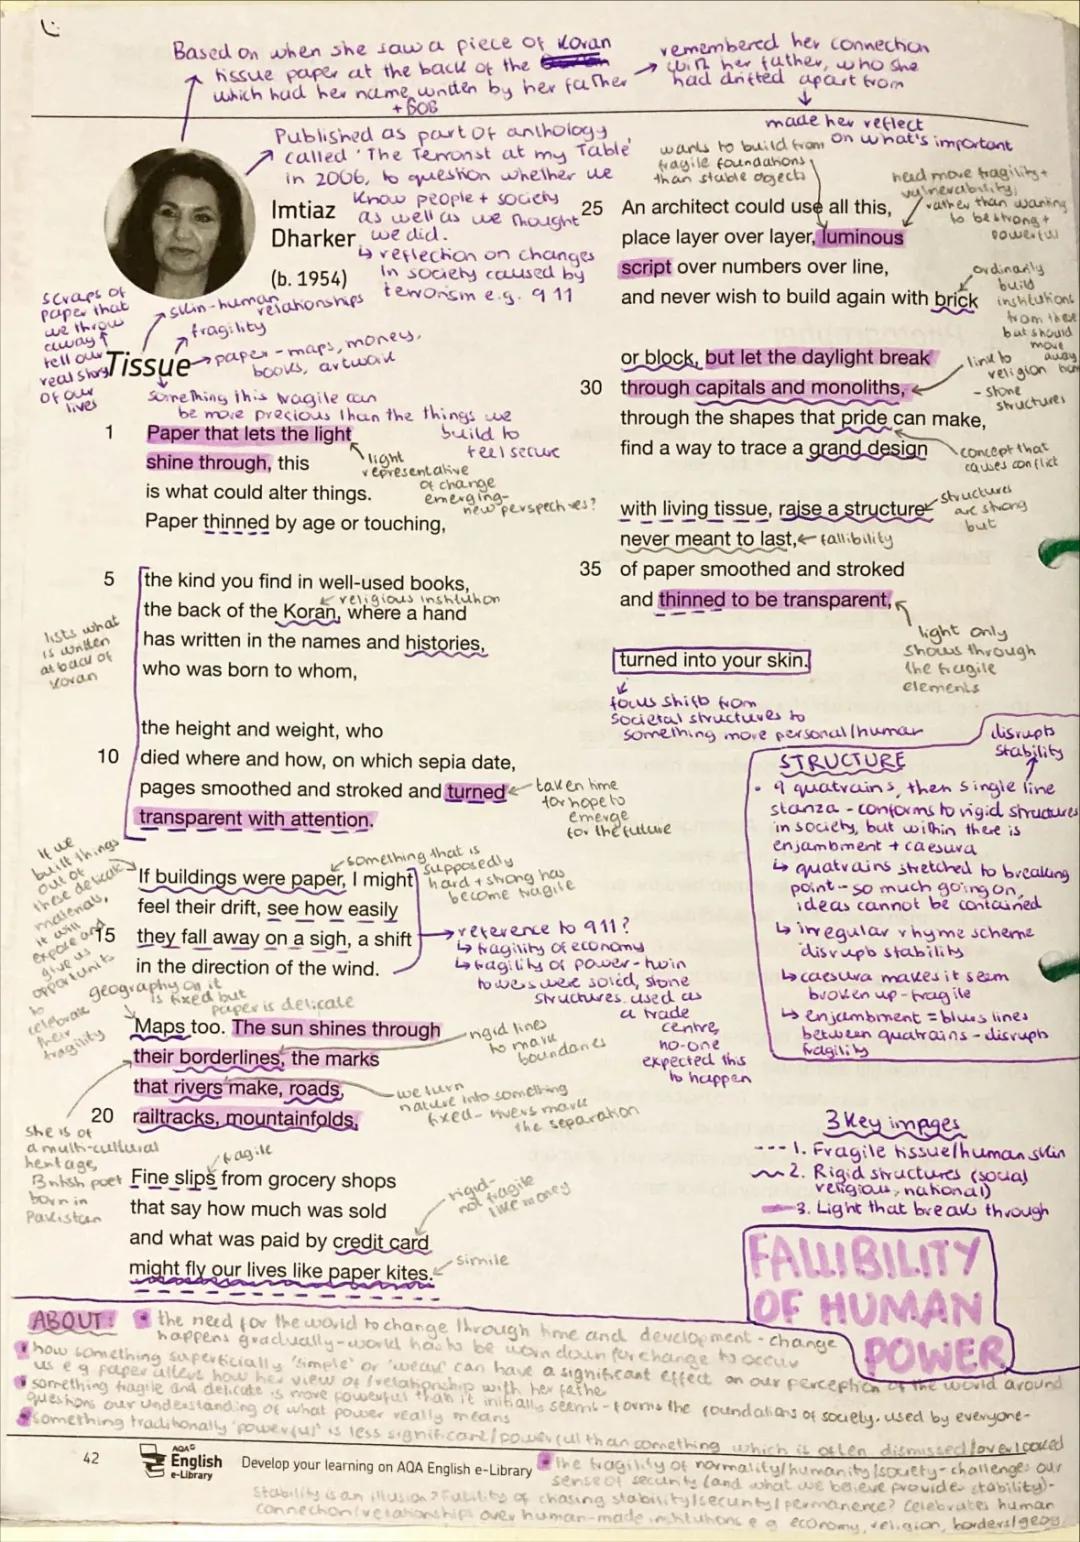 Based on when she saw a piece of Koran
tissue paper at the back of the
which had her name written by her father
+ DOB
remembered her connection
with her father, who she
had drifted apart from
made her reflect
on what's important
Published as part of anthology
called 'The Terrorist at my Table'
in 2006, to question whether we
know people + society
as well as we thought
we did.
↳ reflection on changes
in society caused by
terrorism e.g. 9 11
Imtiaz
Dharker
(b. 1954)
scraps of
paper that
we throw
away
tell our
real story
of our
lives
skin-human relationships
fragility
Tissue
paper - maps, money,
books, artwork
something this fragile can
be more precious than the things we
build to
feel secure
1 Paper that lets the light
shine through, this
is what could alter things.
Paper thinned by age or touching,
light
representative
of change
emerging-
new perspectives?
5 the kind you find in well-used books,
religious institution
the back of the Koran, where a hand
has written in the names and histories,
who was born to whom,
lists what
is written
at back of
Koran
the height and weight, who
10 died where and how, on which sepia date,
pages smoothed and stroked and turned
transparent with attention.
taken time
for hope to
emerge
for the future
If we
built things
out of
these delicate
materials,
it will
expose and
give us
opportunity
to
celebrate
their
fragility
something that is
supposedly
hard + strong has
become fragile
If buildings were paper, I might
feel their drift, see how easily
15 they fall away on a sigh, a shift
in the direction of the wind.
reference to 911?
↳ fragility of economy
↳ fragility of power - twin
towers were solid, stone
structures used as
a trade
centre,
no-one
expected this
to happen
geography on it
is fixed but
paper is delicate
Maps too. The sun shines through
their borderlines, the marks
that rivers make, roads,
20 railtracks, mountainfolds,
rigid lines
to mark
boundaries
we turn
nature into something
fixed - rivers mark
the separation
she is of
a multi-cultural
heritage,
British poet
born in
Pakistan
fragile
Fine slips from grocery shops
that say how much was sold
and what was paid by credit card
might fly our lives like paper kites.
rigid-
not fragile
like money
simile
wants to build from
fragile foundations
than stable objects
need more fragility +
vulnerability,
rather than wanting
to be strong +
powerful
25 An architect could use all this,
place layer over layer, luminous
script over numbers over line,
and never wish to build again with brick
ordinarily
build
institutions
from these
but should
move
away
from
or block, but let the daylight break
30 through capitals and monoliths,
through the shapes that pride can make,
find a way to trace a grand design
link to
religion
- stone
structures
concept that
causes conflict
with living tissue, raise a structure
never meant to last,
fallibility
35 of paper smoothed and stroked
and thinned to be transparent,
structures
are strong
but
light only
shows through
the fragile
elements
turned into your skin.
focus shifts from
societal structures to
something more personal/human
disrupts
stability
STRUCTURE
• 9 quatrains, then single line
stanza - conforms to rigid structures
in society, but within there is
enjambment + caesura
↳ quatrains stretched to breaking
point - so much going on,
ideas cannot be contained
↳ irregular rhyme scheme
disrupts stability
↳ caesura makes it seem
broken up - fragile
↳ enjambment = blurs lines
between quatrains - disrupts
fragility
3 Key images
--- 1. Fragile tissue/human skin
2. Rigid structures (social
religious, national)
3. Light that breaks through
FALLIBILITY
OF HUMAN
POWER
ABOUT: the need for the world to change through time and development - change
happens gradually - world has to be worn down for change to occur
how something superficially 'simple' or 'weak' can have a significant effect on our perception of the world around
us e.g paper alters how her view of/relationship with her father
something fragile and delicate is more powerful than it initially seems - forms the foundations of society. used by everyone-
questions our understanding of what power really means
something traditionally 'powerful' is less significant/powerful than something which is often dismissed/overlooked
42 AQA English e-Library Develop your learning on AQA English e-Library
the fragility of normality/humanity/society - challenges our
sense of security (and what we believe provides stability)-
stability is an illusion? Futility of chasing stability/security/permanence? Celebrates human
connection/relationships over human-made institutions e g economy, religion, borders/geog